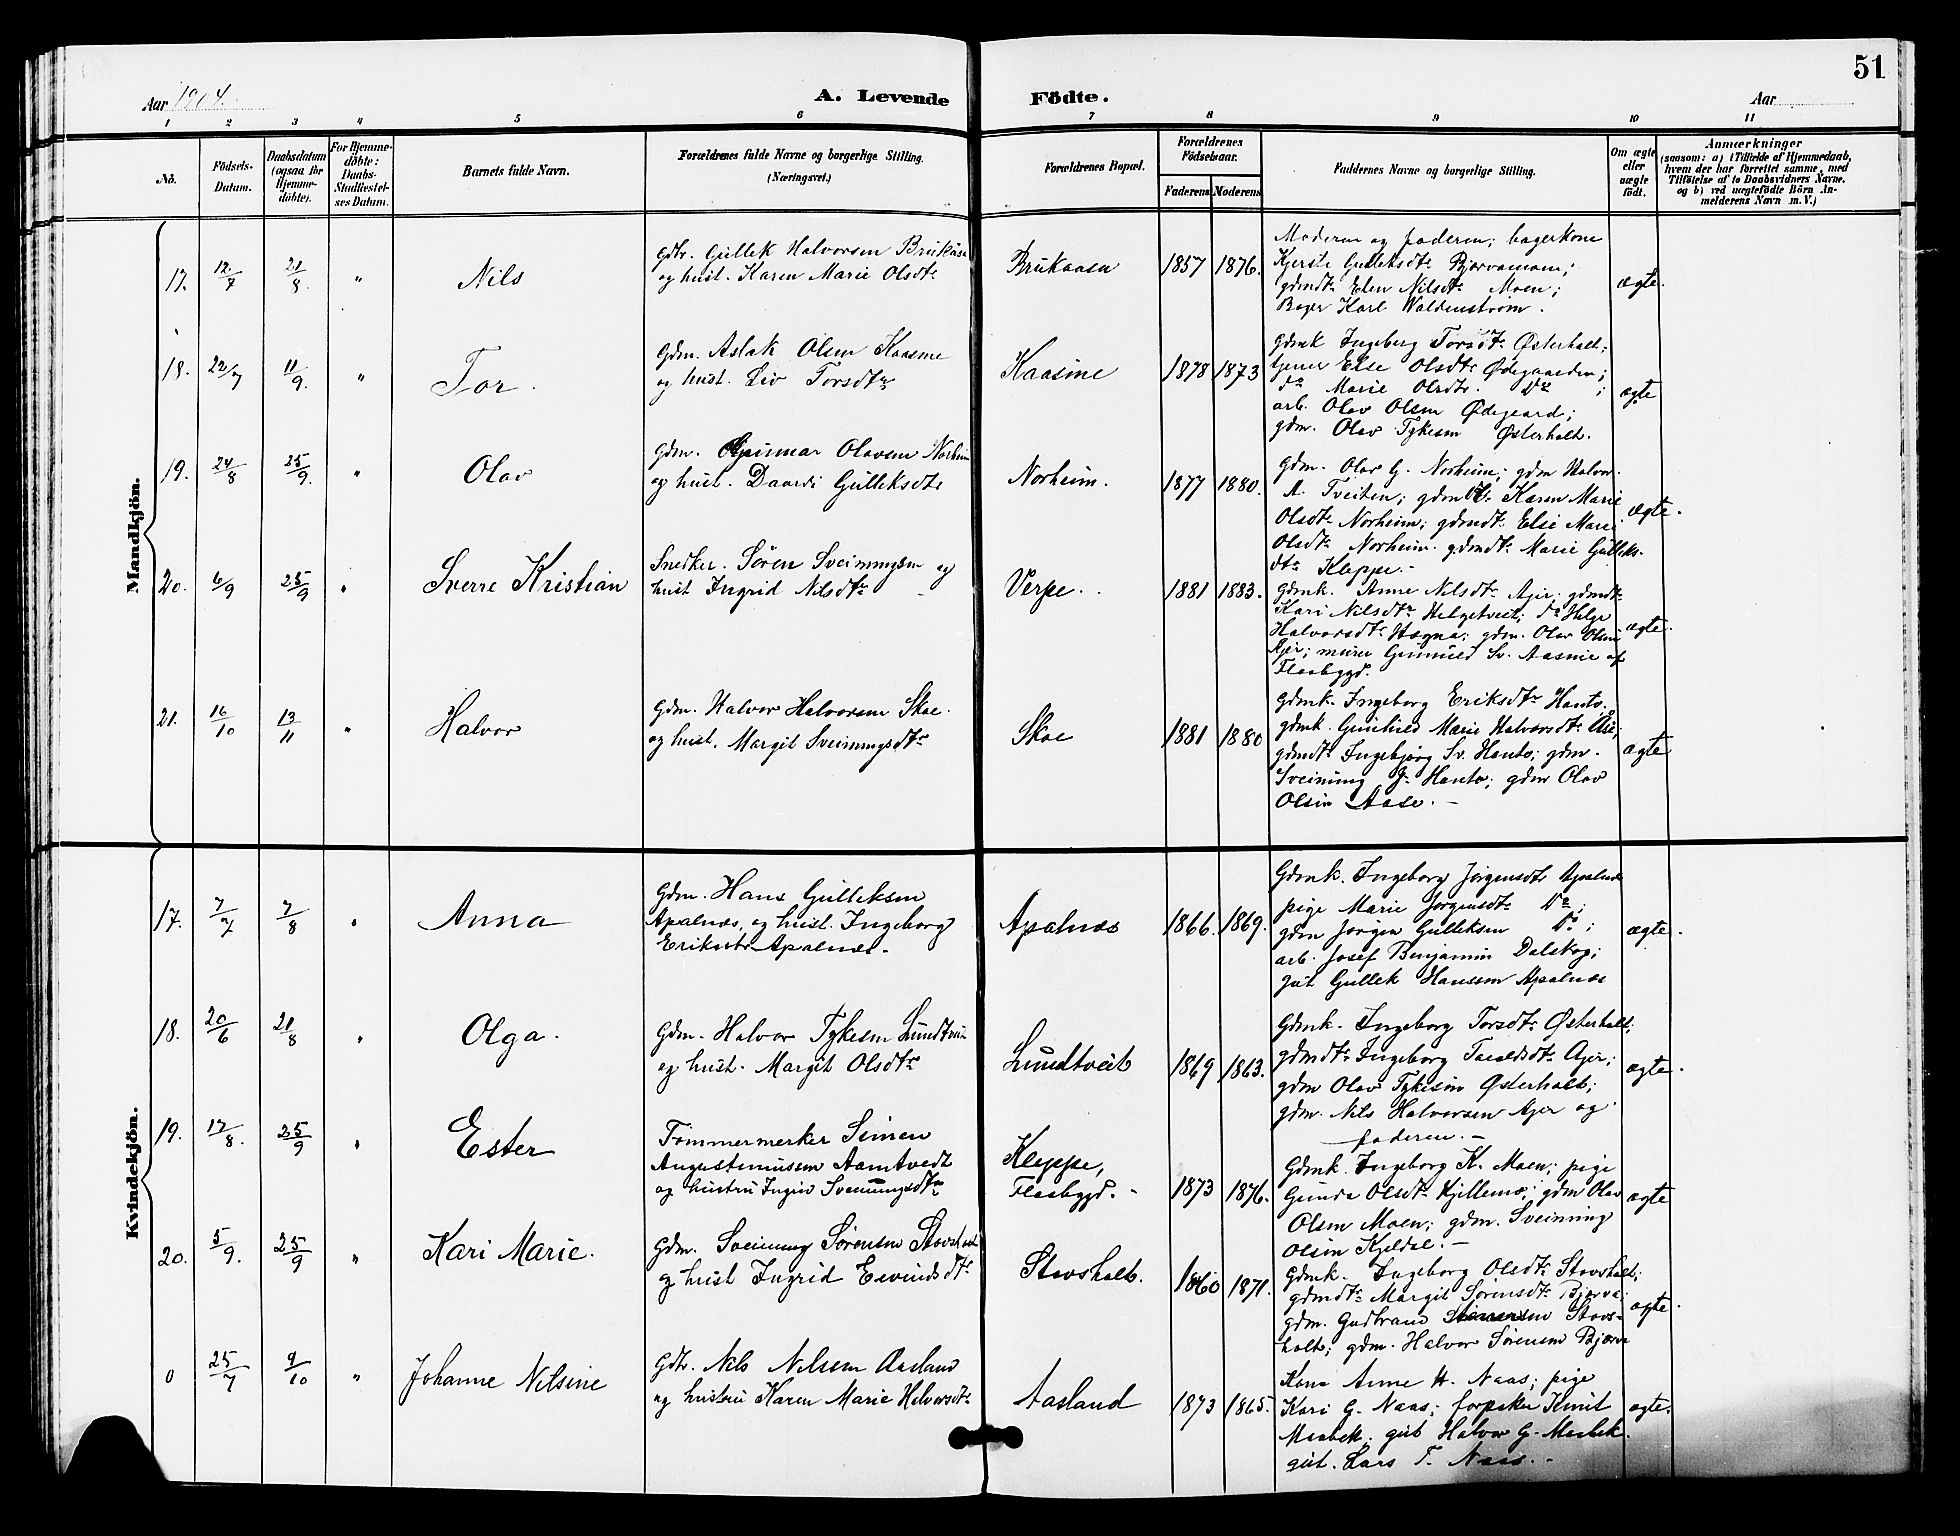 51
Aar 1904.
A. Levende Födte.
Aar
1 2 3 4 5 6 7 8 9 10 11
No.
Födsels-Datum.
Daabsdatum (ogsaa for Hjemme-döbte).
For Hjemme-döbte: Daabs-Stadfæstel-ses Datum.
Barnets fulde Navn.
Forældrenes fulde Navne og borgerlige Stilling.
(Næringsvei.)
Forældrenes Bopæl.
Forældrenes Födselsaar.
Faderens Moderens
Faddernes Navne og borgerlige Stilling.
Om ægte eller uægte födt.
Anmærkninger
(saasom: a) i Tilfælde af Hjemmedaab,
hvem der har forrettet samme, med
Tilföielse af to Daabsvidners Navne.
og b) ved uægtefödte Börn An-
melderens Navn m. V.)
Mandkjön.
17. 12/7 21/8. " Nils
Gbr. Gullek Halvorsen Brukåsa
og hust. Karen Marie Olsdtr
Brukaasa 1857 1876.
Moderen og faderen; bagerkone
Kjersti Gulleksdtr Bjorvamoen;
gdmdtr Elen Nilsdtr Moen;
Bager Karl Waldenstrøm.
ægte.
18. 22/7 11/9. " Tor.
Gdm. Aslak Olsen Kaasine
og hust. Liv Torsdtr
Kaasine 1878 1873
Gdmk Ingeborg Torsdtr Østerholt;
tjener Else Olsdtr Ødegaarden;
do Marie Olsdtr. do;
arb. Olav Olsen Ødegaard;
gdm. Olav Tykesen Østerholt.
ægte
19. 24/8 25/9. " Olav
Gdm. Gunnar Olavsen Norheim
og hust. Daardi Gulleksdtr
Norheim. 1877 1880.
Gdm. Olav G. Norheim; gdm Halvor
A. Tveiten; gdmdtr Karen Marie
Olsdtr Norheim; gdmdtr Else Marie
Olsdtr Norheim. gdmdtr Marie Gulleks-
dtr Kleppe.-
ægte.
20. 6/9 25/9 " Sverre Kristian
Snedker. Søren Sveinungsen og
hust Ingrid Nilsdtr
Verpe. 1881 1883.
Gdmk. Anne Nilsdtr Ajer; gdmdtr
Kari Nilsdtr Helgetveit; do Helge
Halvorsdtr Hægna; gdm. Olav Olsen
Ajer; Gunnuld Sv. Aasne af
Flaabygd.
ægte.
21. 16/10 13/11 " Halvor
Gdm. Halvor Halvorsen Skoe.
og hust. Margit Sveinungsdtr
Skoe 1881 1880
Gdmk. Ingeborg Eriksdtr Hanto;
gdmk. Gunhild Marie Halvorsdtr Åse;
gdmdtr Ingebjørg Sv. Hanto; gdm.
Sveinung G. Hanto; gdm Olav
Olsen Aase.-
ægte
Kvindekjön.
17. 7/7 7/8 " Anna
Gdm. Hans Gulleksen
Apalnæs, og hust. Ingeborg
Eriksdtr Apalnæs.
Apalnæs 1866. 1869.
Gdmk. Ingeborg Jørgensdtr Apalnæs
pige Marie Jørgensdtr do;
gdm Jørgen Gulleksen do;
arb. Josef Benjamin Dalskog;
gut Gullek Hanssen Apalnæs
ægte.
18. 20/6 21/8 " Olga.
Gdm. Halvor Tykesen Lundtveit
og hust. Margit Olsdtr
Lundtveit 1869 1863.
Gdmk. Ingeborg Torsdtr Østerholt;
gdmdtr Ingeborg Taraldsdtr Ajer;
gdm Olav Tykesen Østerholt;
gdm. Nils Halvorsen Ajer og
faderen.-
ægte.
19. 17/8. 25/9 " Ester
Tømmermerker Simen
Augustinussen Aamtvedt
og hustru Ingiv Sveinungsdtr
Kleppe,
Flaabygd.- 1873 1876.
Gdmk. Ingeborg K. Moen; pige
Gunda Olsdtr Kjillemo; gdm Olav
Olsen Moen; gdm. Sveinung
Olsen Kjeldal.-
ægte
20. 5/9. 25/9 " Kari Marie.
Gdm. Sveinung Sørensen Stovsholt
og hust Ingrid Eivindsdtr
Stovsholt. 1860 1871.
Gdmk. Ingeborg Olsdtr Stovsholt;
gdmdtr Margit Sørensdtr Bjerva;
gdm. Gudbrand Stovs-
holt; gdm. Halvor Sørensen Bjerva
ægte.
0 25/7 9/10 " Johanne Nilsine
Gbr. Nils Nilssen Aasland
og hustru Karen Marie Halvorsdtr
Aasland 1873 1865.
Kona Anne H. Naas; pige
Kari G. Naas; forpakter Knut
Maabek. gut Halvor G. Maabek.
gut. Lars T. Naas.-
ægte.